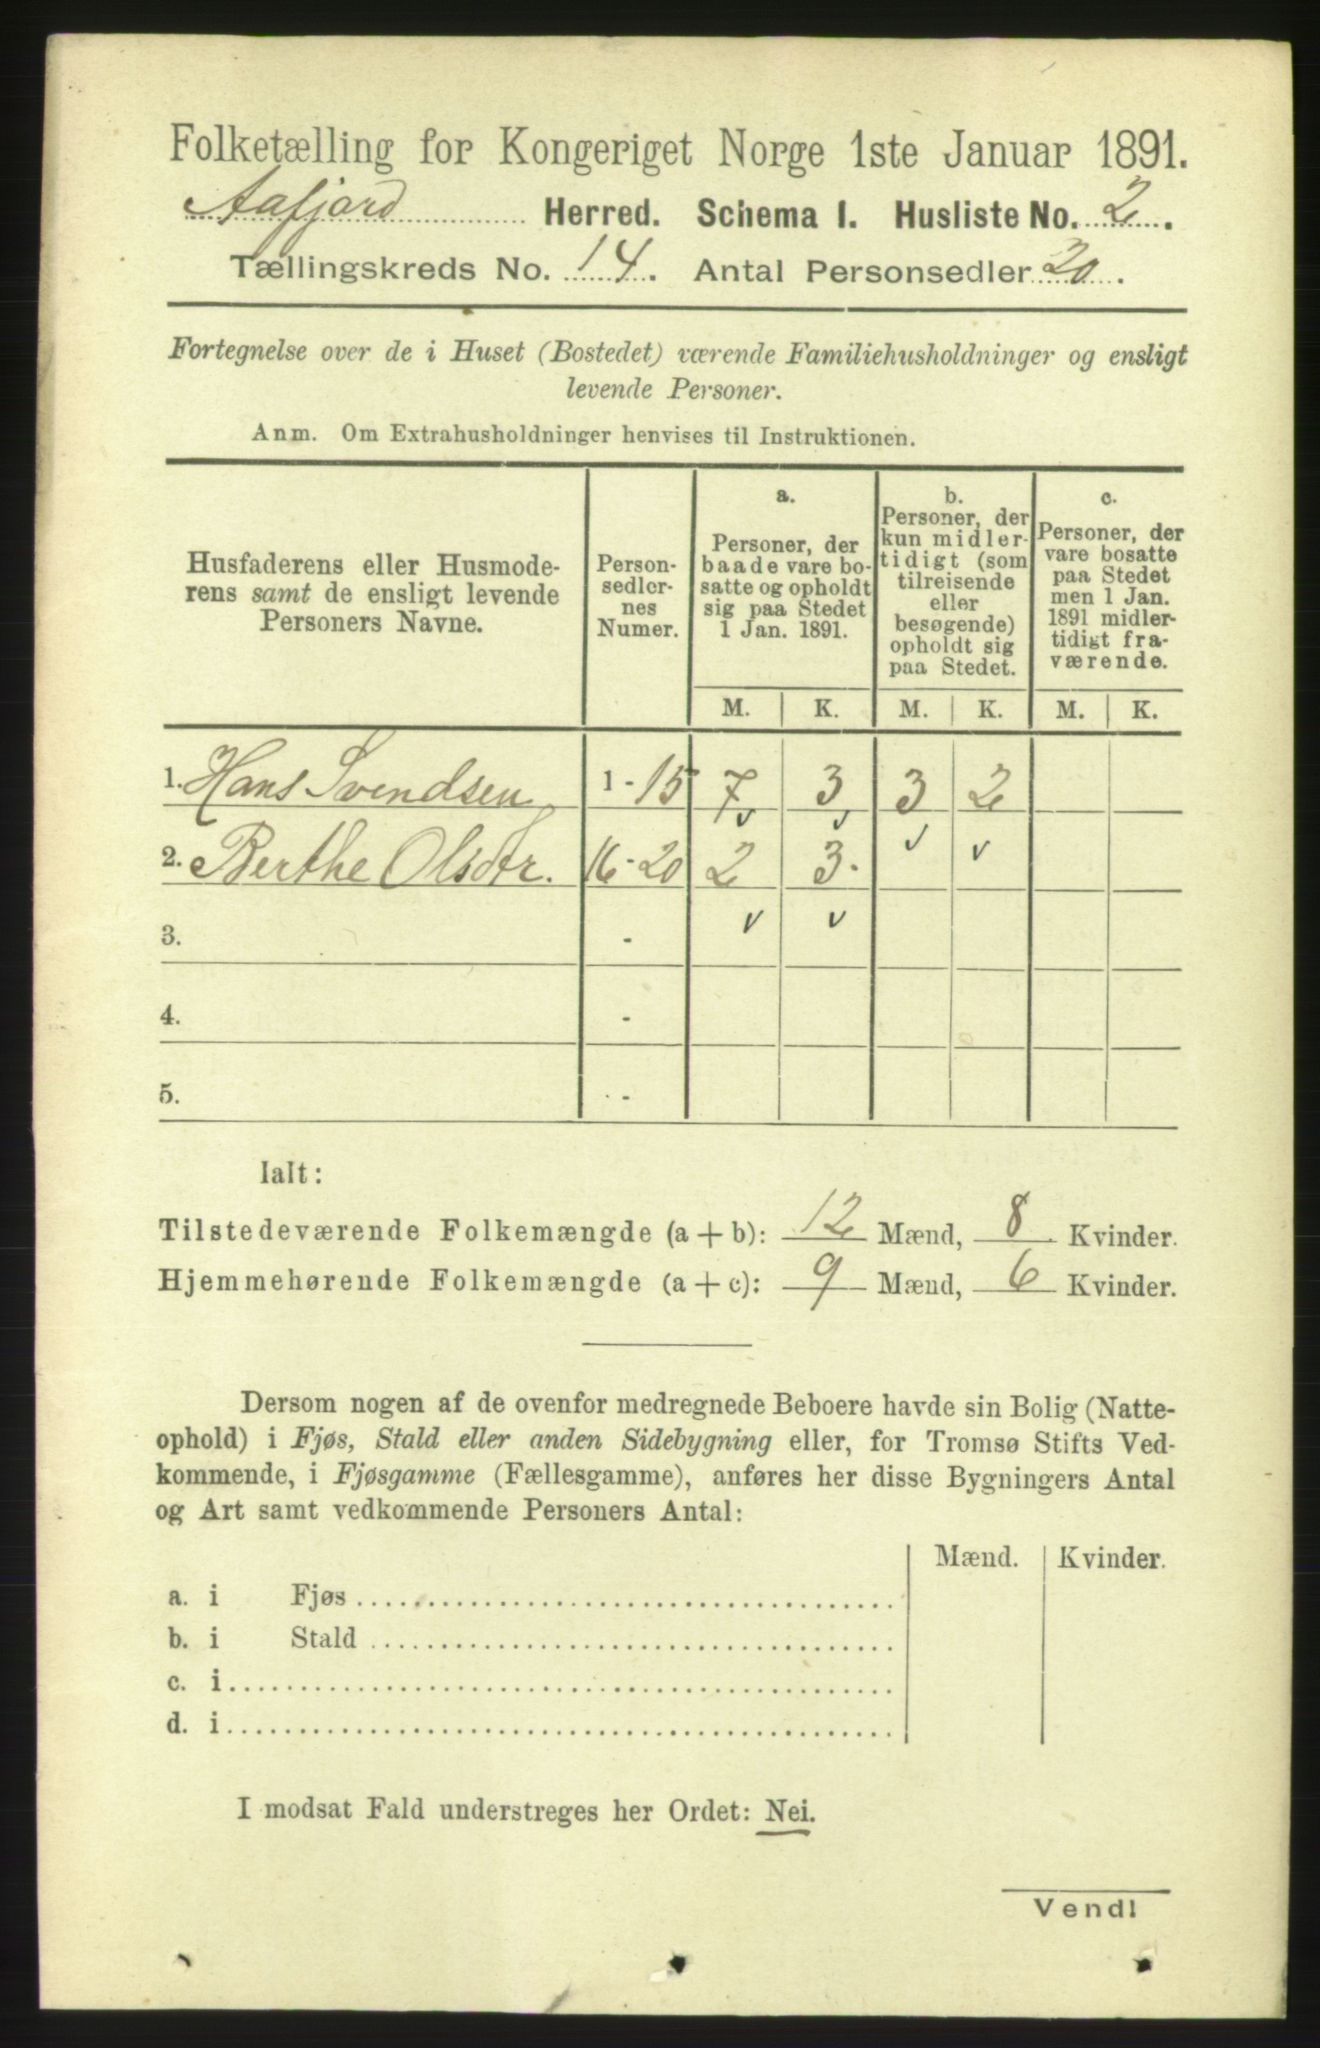 Folketælling for Kongeriget Norge 1ste Januar 1891.
Aafjord Herred. Schema I. Husliste No. 2.
Tællingskreds No. 14. Antal Personsedler 20.
Fortegnelse over de i Huset (Bostedet) værende Familiehusholdninger og ensligt
levende Personer.
Anm. Om Extrahusholdninger henvises til Instruktionen.
Husfaderens eller Husmode-
rens samt de ensligt levende
Personers Navne.
Person-
sedler-
nes
Numer.
a.
Personer, der
baade vare bo-
satte og opholdt
sig paa Stedet
1 Jan. 1891.
b.
Personer, der
kun midler-
tidigt (som
tilreisende
eller
besøgende)
opholdt sig
paa Stedet.
c.
Personer, der
vare bosatte
paa Stedet
men 1 Jan.
1891 midler-
tidigt fra-
værende.
M. K. M. K. M. K.
1. Hans Svendsen 1 - 15 7 3 3 2
2. Berthe Olsdtr. 16 - 20 2 3.
3. -
4. -
5. -
Ialt:
Tilstedeværende Folkemængde (a + b): 12 Mænd, 8 Kvinder.
Hjemmehørende Folkemængde (a + c): 9 Mænd, 6 Kvinder.
Dersom nogen af de ovenfor medregnede Beboere havde sin Bolig (Natte-
ophold) i Fjøs, Stald eller anden Sidebygning eller, for Tromsø Stifts Ved-
kommende, i Fjøsgamme (Fællesgamme), anføres her disse Bygningers Antal
og Art samt vedkommende Personers Antal:
Mænd. Kvinder.
a. i Fjøs
b. i Stald
c. i
d. i
I modsat Fald understreges her Ordet: Nei.
Vend!